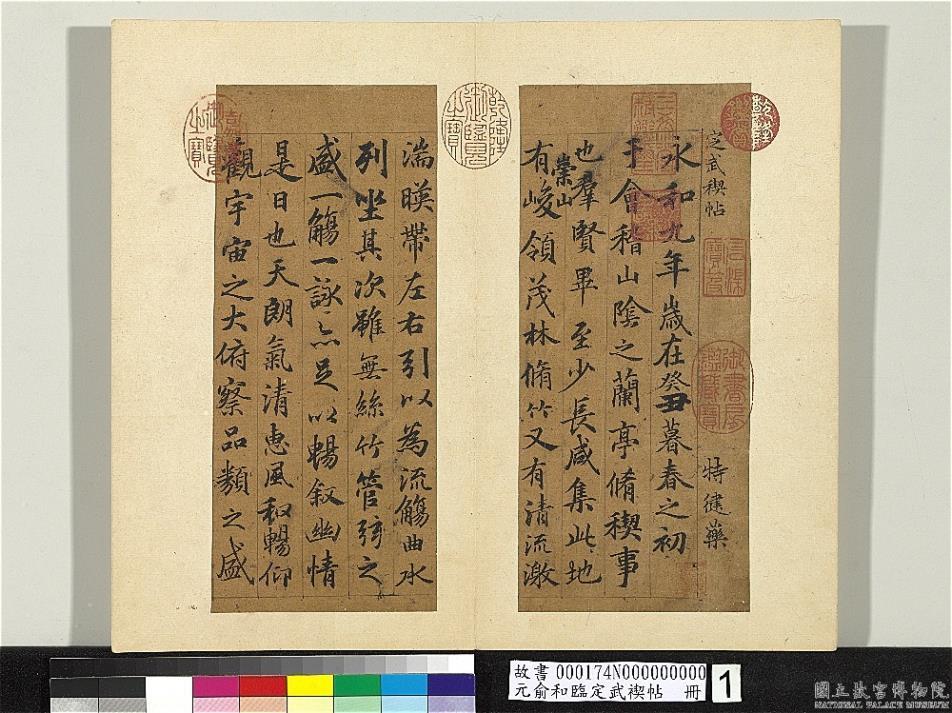 定武禊帖 特健藥
永和九年歲在癸丑暮春之初
于會稽山陰之蘭亭脩禊事
也羣賢畢至少長咸集此地
崇山
有峻領茂林脩竹又有清流激
湍暎帶左右引以為流觴曲水
列坐其次雖無絲竹管弦之
盛一觴一詠亦足以暢敘幽情
是日也天朗氣清惠風和暢仰
觀宇宙之大俯察品類之盛
乾隆御覽之寶
乾隆
御書房鑑藏寶
故書 000174N000000000
元俞和臨定武禊帖 冊
1
國立故宮博物院
NATIONAL PALACE MUSEUM